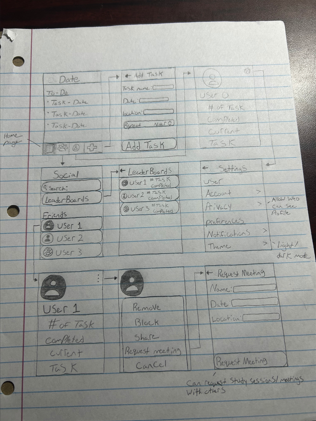 Date
To-Do
- Task-Date
- Task-Date
- Task-Date
Home
page
← Add Task
Task name
Date
Location
Repeat
Add Task
User
# of Task
Completed
Current
Task
Social
Search
LeaderBoards
Friends
User 1
User 2
User 3
← LeaderBoards
User 1 # Task
User 2 # Task
User 3 # Task
← Settings
User
Account >
Privacy >
preferences
Notifications >
Theme >
Light/
dark mode
User 1
# of Task
completed
current
Task
Remove
Block
Share
Request meeting
Cancel
← Request Meeting
Name
Date
Location
Request Meeting
Can request study sessions/meetings
with others